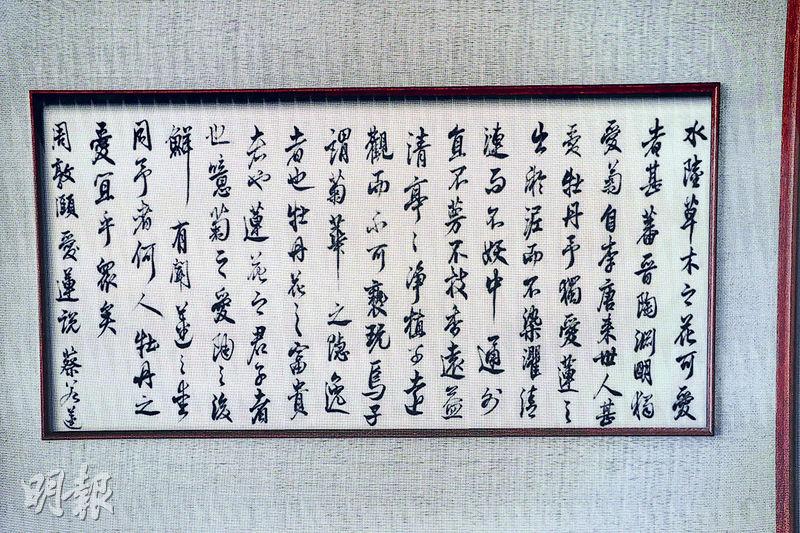 水陸草木之花可愛
者甚蕃晉陶淵明獨
愛菊自李唐來世人甚
愛牡丹予獨愛蓮之
出淤泥而不染濯清
漣而不妖中通外
直不蔓不枝香遠益
清亭〻淨植可遠
觀而不可褻玩焉予
謂菊華之隱逸
者也牡丹花之富貴
者也蓮花之君子者
也噫菊之愛陶之後
鮮有聞蓮之愛
同予者何人牡丹之
愛宜乎眾矣
周敦頤愛蓮說 蔡若蓮
明報